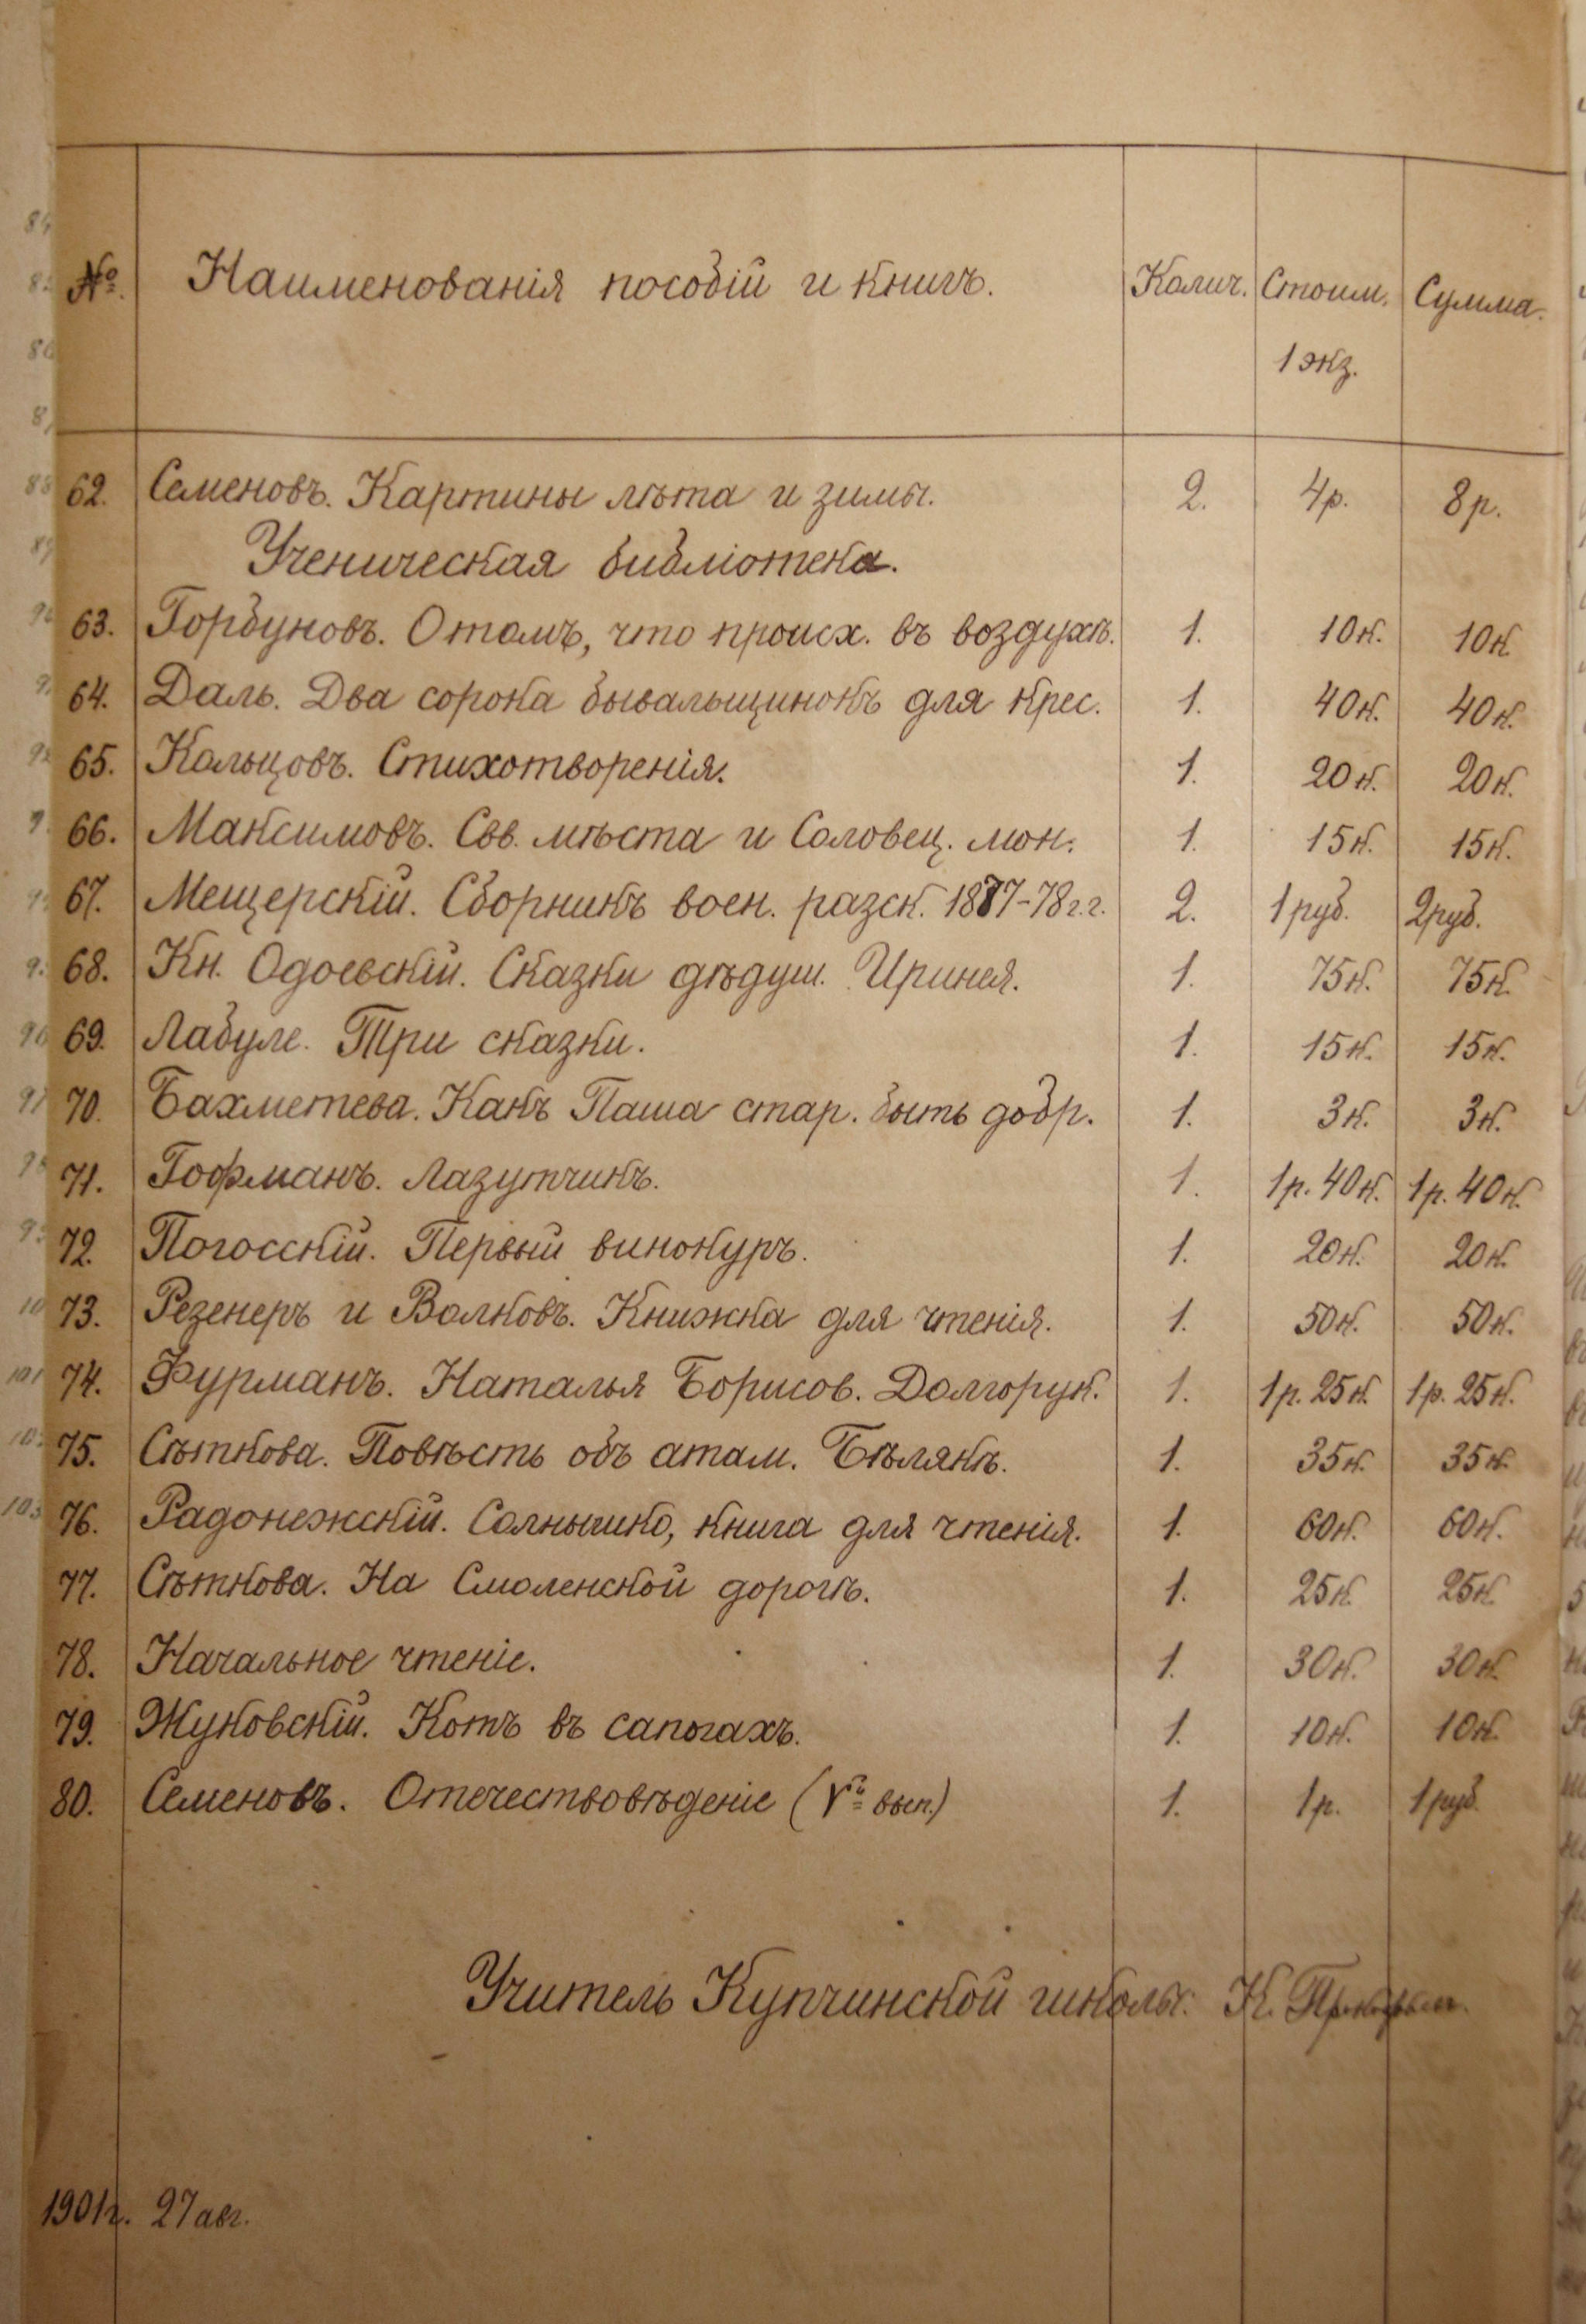 №. Наименованія пособій и книгъ. Колич. Стоим. Сумма.
1 экз.
62. Семеновъ. Картины лѣта и зимы. 2. 4р. 8р.
Ученическая библіотека.
63. Горбуновъ. О томъ, что происх. въ воздухѣ. 1. 10к. 10к.
64. Даль. Два сорока бывальщинокъ для крес. 1. 40к. 40к.
65. Кольцовъ. Стихотворенія. 1. 20к. 20к.
66. Максимовъ. Свв. мѣста и Соловец. мон. 1. 15к. 15к.
67. Мещерскій. Сборникъ воен. разск. 1877-78 г.г. 2. 1 руб. 2 руб.
68. Кн. Одоевскій. Сказки дѣдуш. Иринея. 1. 75к. 75к.
69. Лабуле. Три сказки. 1. 15к. 15к.
70. Бахметева. Какъ Паша стар. быть добр. 1. 3к. 3к.
71. Гофманъ. Лазутчикъ. 1. 1р. 40к. 1р. 40к.
72. Погосскій. Первый винокуръ. 1. 20к. 20к.
73. Резенеръ и Волковъ. Книжка для чтенія. 1. 50к. 50к.
74. Фурманъ. Наталья Борисов. Долгорук. 1. 1р. 25к. 1р. 25к.
75. Сѣткова. Повѣсть объ атам. Бѣлякѣ. 1. 35к. 35к.
76. Радонежскій. Солнышко, книга для чтенія. 1. 60к. 60к.
77. Сѣткова. На Смоленской дорогѣ. 1. 25к. 25к.
78. Начальное чтеніе. 1. 30к. 30к.
79. Жуковскій. Котъ въ сапогахъ. 1. 10к. 10к.
80. Семеновъ. Отечествовѣденіе (Vй вып.) 1. 1р. 1 руб.
Учитель Купчинской школы К.
1901 г. 27 авг.